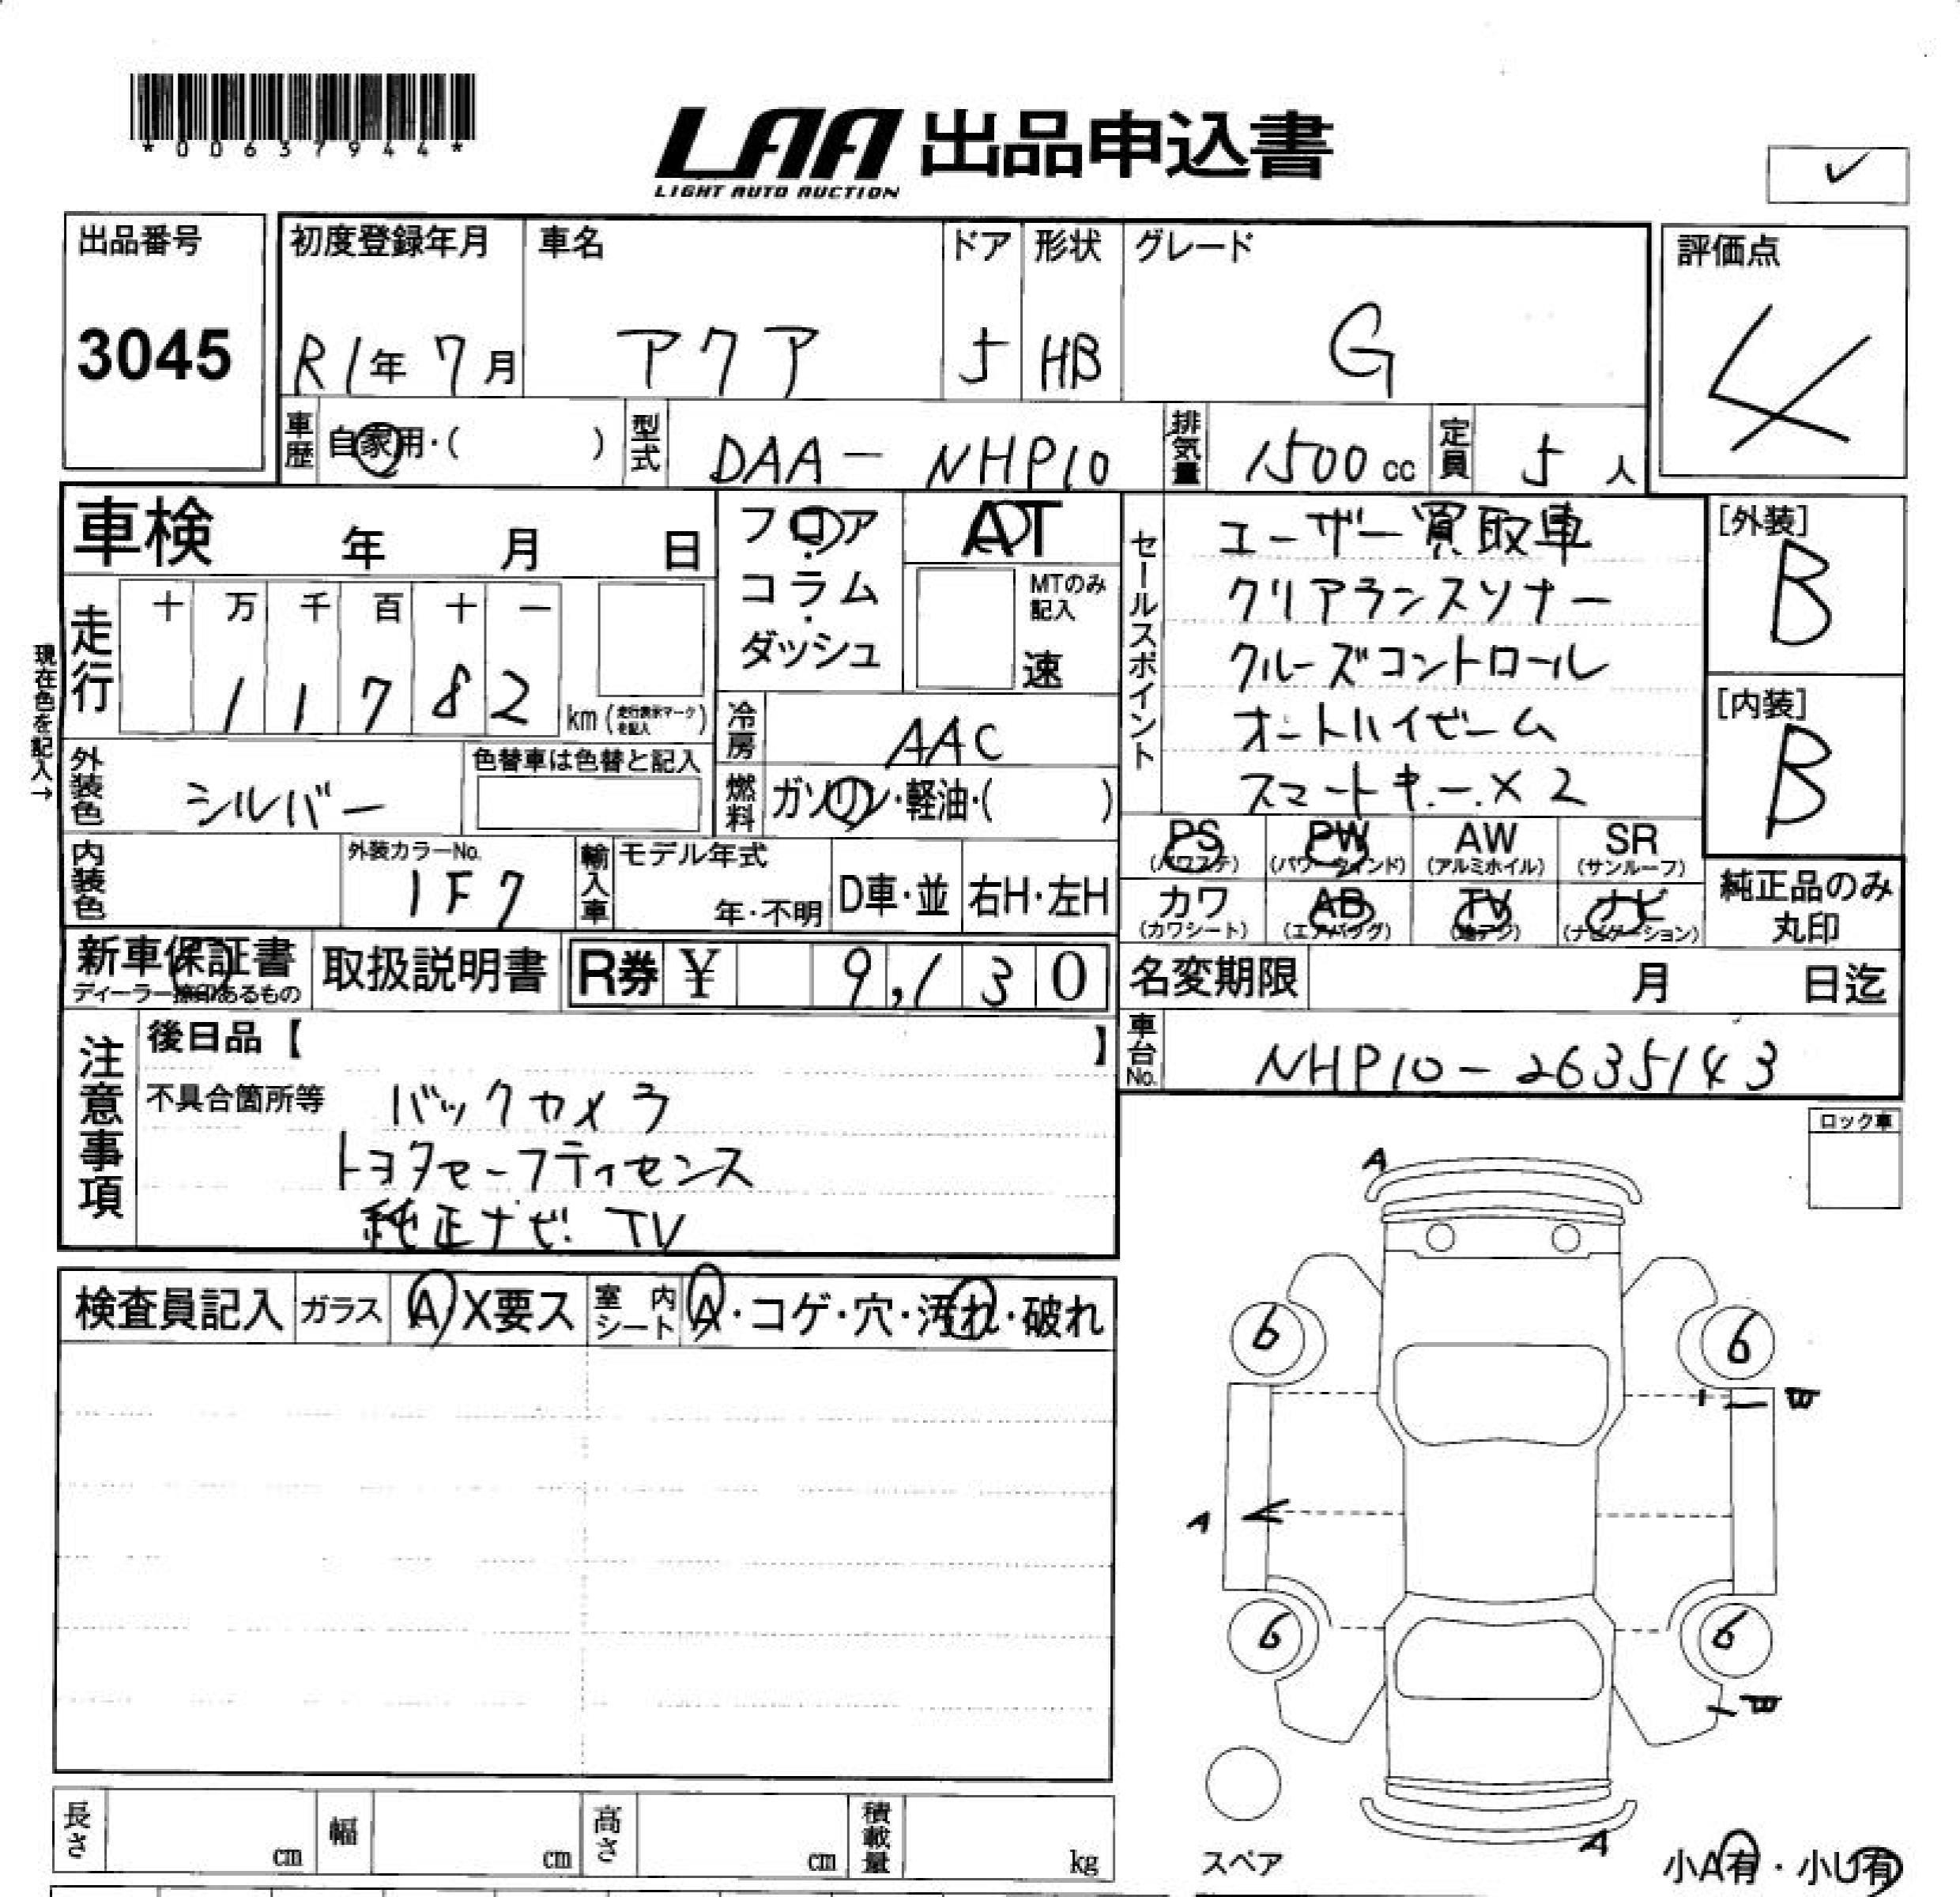 *00637944*
LAA 出品申込書
LIGHT AUTO AUCTION
✓
出品番号
3045
初度登録年月
R1年 7月
車名
アクア
ドア
5
形状
HB
グレード
G
評価点
4
車歴
自家用・( )
型式
DAA- NHP10
排気量
1500 cc
定員
5 人
車検 年 月 日
フロア・コラム・ダッシュ
AT
MTのみ記入
速
走行
十 万 千 百 十 一
1 1 7 8 2
km (走行表示マークを記入)
現在色を記入→
冷房
AAC
外装色
シルバー
色替車は色替と記入
燃料
ガソリン・軽油・( )
内装色
外装カラーNo.
1F7
輸入車
モデル年式
年・不明
D車・並
右H・左H
セールスポイント
ユーザー買取車
クリアランスソナー
クルーズコントロール
オートハイビーム
スマートキー×2
[外装]
B
[内装]
B
PS
(パワステ)
PW
(パワーウィンド)
AW
(アルミホイル)
SR
(サンルーフ)
カワ
(カワシート)
AB
(エアバッグ)
TV
(地デジ)
ナビ
(ナビゲーション)
純正品のみ
丸印
新車保証書
ディーラー捺印あるもの
取扱説明書
R券 ¥ 9,130
名変期限 月 日迄
車台No.
NHP10-2635143
注意事項
後日品【 】
不具合箇所等
バックカメラ
トヨタセーフティセンス
純正ナビ.TV
ロック車
検査員記入
ガラス
A X要ス
室内シート
A・コゲ・穴・汚れ・破れ
A
6 6
B
A
6 6
B
A
スペア
小A有・小U有
長さ cm
幅 cm
高さ cm
積載量 kg